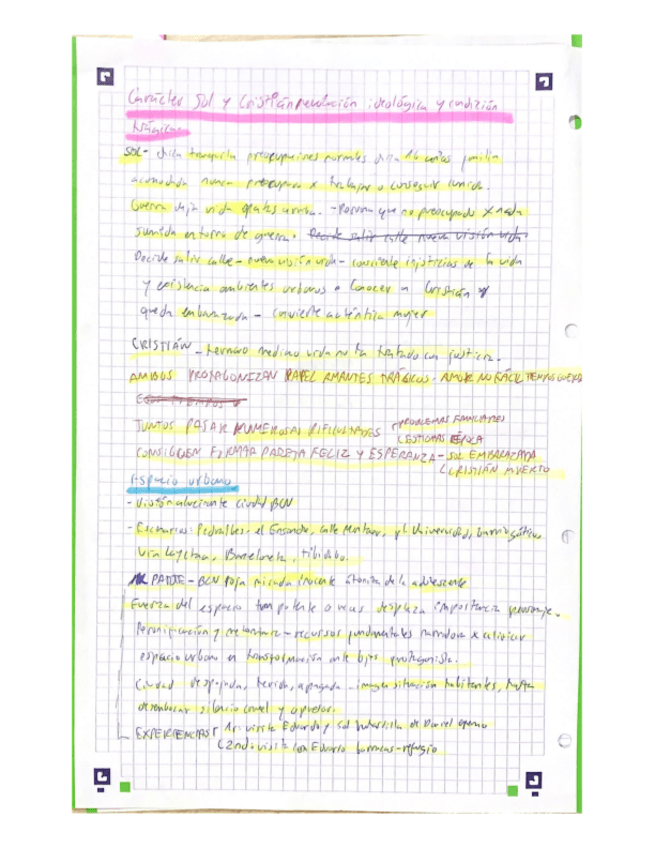 Carácter Sol y Cristián evolución ideológica y condición
trágica
SOL- chica tranquila preocupaciones normales chica 16 años familia
acomodada nunca preocupara x trabajar o conseguir comida.
Guerra deja vida patas arriba. - Persona que no preocupado x nada
sumida entorno de guerra. Decide salir calle nueva visión vida
Decide salir calle - nueva visión vida - consciente injusticias de la vida
y existencia ambientes urbanos Conocer a Cristián y
queda embarazada - convierte auténtica mujer
CRISTIÁN - hermano mediano vida no ha tratado con justicia.
AMBOS PROTAGONIZAN PAPEL AMANTES TRÁGICOS - AMOR NO FÁCIL TIEMPOS GUERRA
JUNTOS PASAR NUMEROSAS DIFICULTADES PROBLEMAS FAMILIARES
ESTIGMAS ÉPOCA
CONSIGUEN FORMAR PAREJA FELIZ Y ESPERANZA - SOL EMBARAZADA
CRISTIÁN MUERTO
Espacio urbano
- Visión alucinante ciudad BCN
- Escenarios: Pedralbes, el Ensanche, calle Muntaner, pl Universidad, barrio gótico
Vía Layetana, Barceloneta, Tibidabo.
PARTE - BCN bajo mirada inocente atónita de la adolescente
Fuerza del espacio tan potente a veces desplaza importancia personaje.
Personificación y metáfora - recursos fundamentales narradora x
espacio urbano en transformación ante ojos protagonista.
Ciudad despojada, herida, apagada - imagen situación habitantes, hasta
desembocar silencio cruel y
EXPERIENCIAS 1r visita Eduardo y Sol de Daniel
2nd visita con Eduardo barracas - refugio